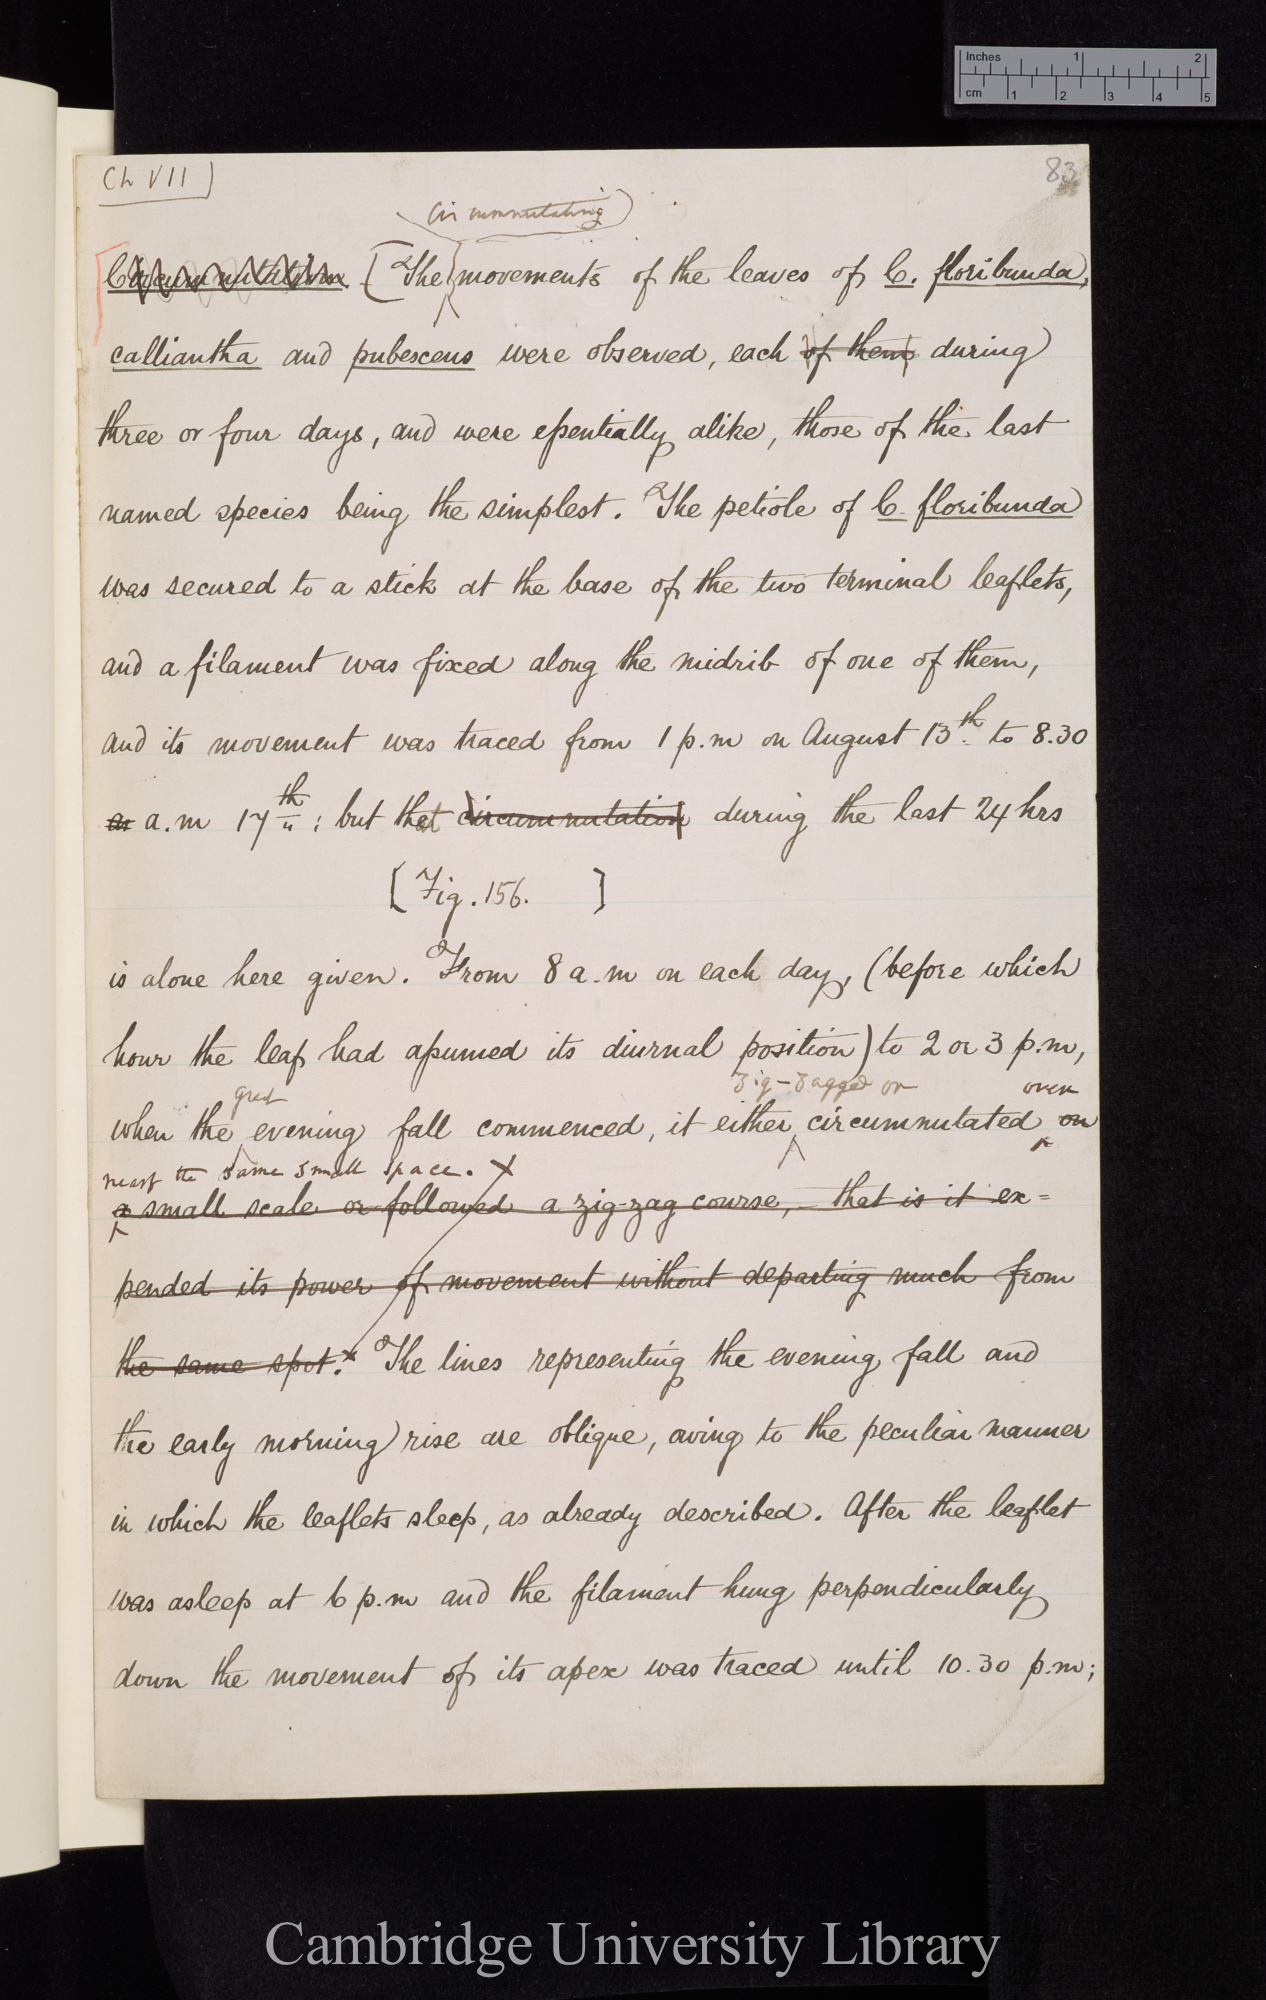 Inches 1 2
cm 1 2 3 4 5
Ch VII
83
circumnutating
Circumnutation [The movements of the leaves of C. floribunda,
calliantha and pubescens were observed, each of them during
three or four days, and were essentially alike, those of the last
named species being the simplest. The petiole of C. floribunda
was secured to a stick at the base of the two terminal leaflets,
and a filament was fixed along the midrib of one of them,
and its movement was traced from 1 p.m on August 13th. to 8.30
a.m 17th: but that circumnutation during the last 24 hrs
[Fig. 156. ]
is alone here given. From 8 a.m on each day, (before which
hour the leaf had assumed its diurnal position) to 2 or 3 p.m,
great zig-zagged or over
when the evening fall commenced, it either circumnutated on
nearly the same small space. X
a small scale or followed a zig-zag course, – that is it ex=
pended its power of movement without departing much from
the same spot. X The lines representing the evening fall and
the early morning rise are oblique, owing to the peculiar manner
in which the leaflets sleep, as already described. After the leaflet
was asleep at 6 p.m and the filament hung perpendicularly
down the movement of its apex was traced until 10.30 p.m;
Cambridge University Library